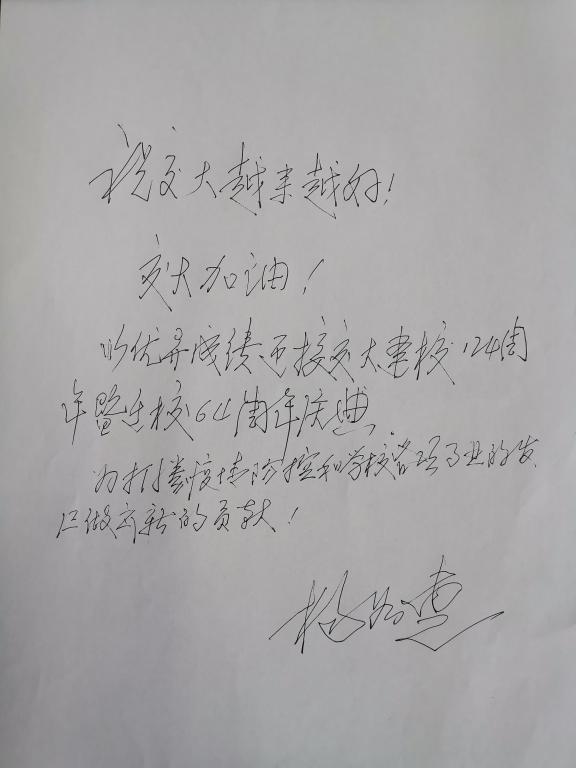 祝交大越来越好!
交大加油!
以优异成绩迎接交大建校124周
年暨迁校64周年庆典.
为打赢疫情防控和学校各项事业的发
展做出新的贡献!